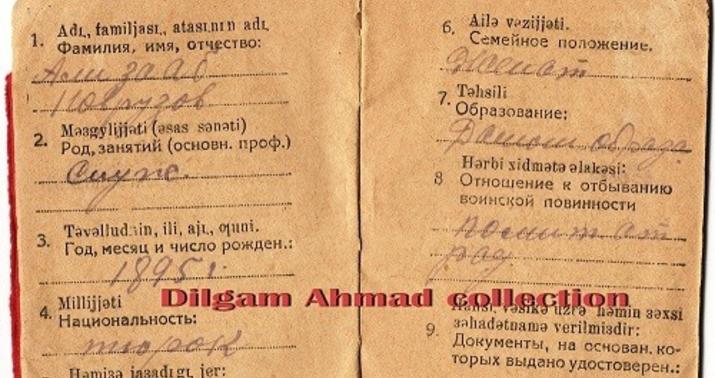 1. Adı, familjası, atasının adı
Фамилия, имя, отчество:
Ализааб
Новрузов
2. Məzgylijjəti (əsas sənəti)
Род, занятий (основн. проф.)
Служ.
3. Təvəlludnin, ili, ajı, quni.
Год, месяц и число рожден.:
1895 г.
4. Millijjəti
Национальность:
тюрок
Həmişə jaşadıgı jer:
6. Ailə vəzijjəti.
Семейное положение.
Женат
7. Təhsili
Образование:
Домаш
Hərbi xidmətə əlakəsi:
8 Отношение к отбыванию
воинской повинности
рад
Dilgam Ahmad collection
Hansı, vəsikə uzrə həmin şəxsi
9. şəhadətnamə verilmisdir:
Документы, на основан. ко-
торых выдано удостоверен.: